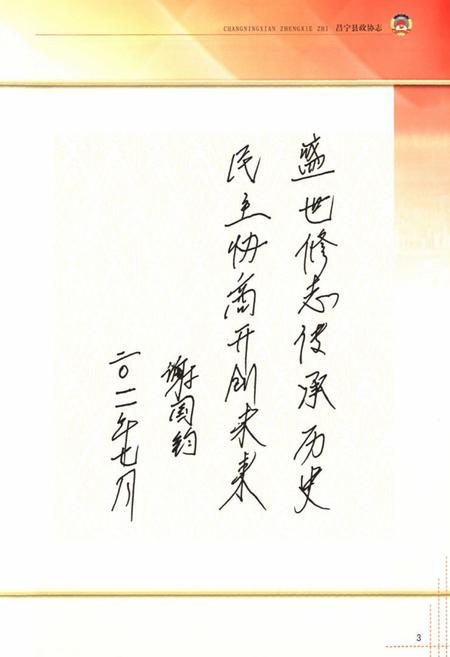 CHANGNINGXIAN ZHENGXIE ZHI 昌宁县政协志
盛世修志传承历史
民主协商开创未来
谢国钧
二〇一一年七月
3